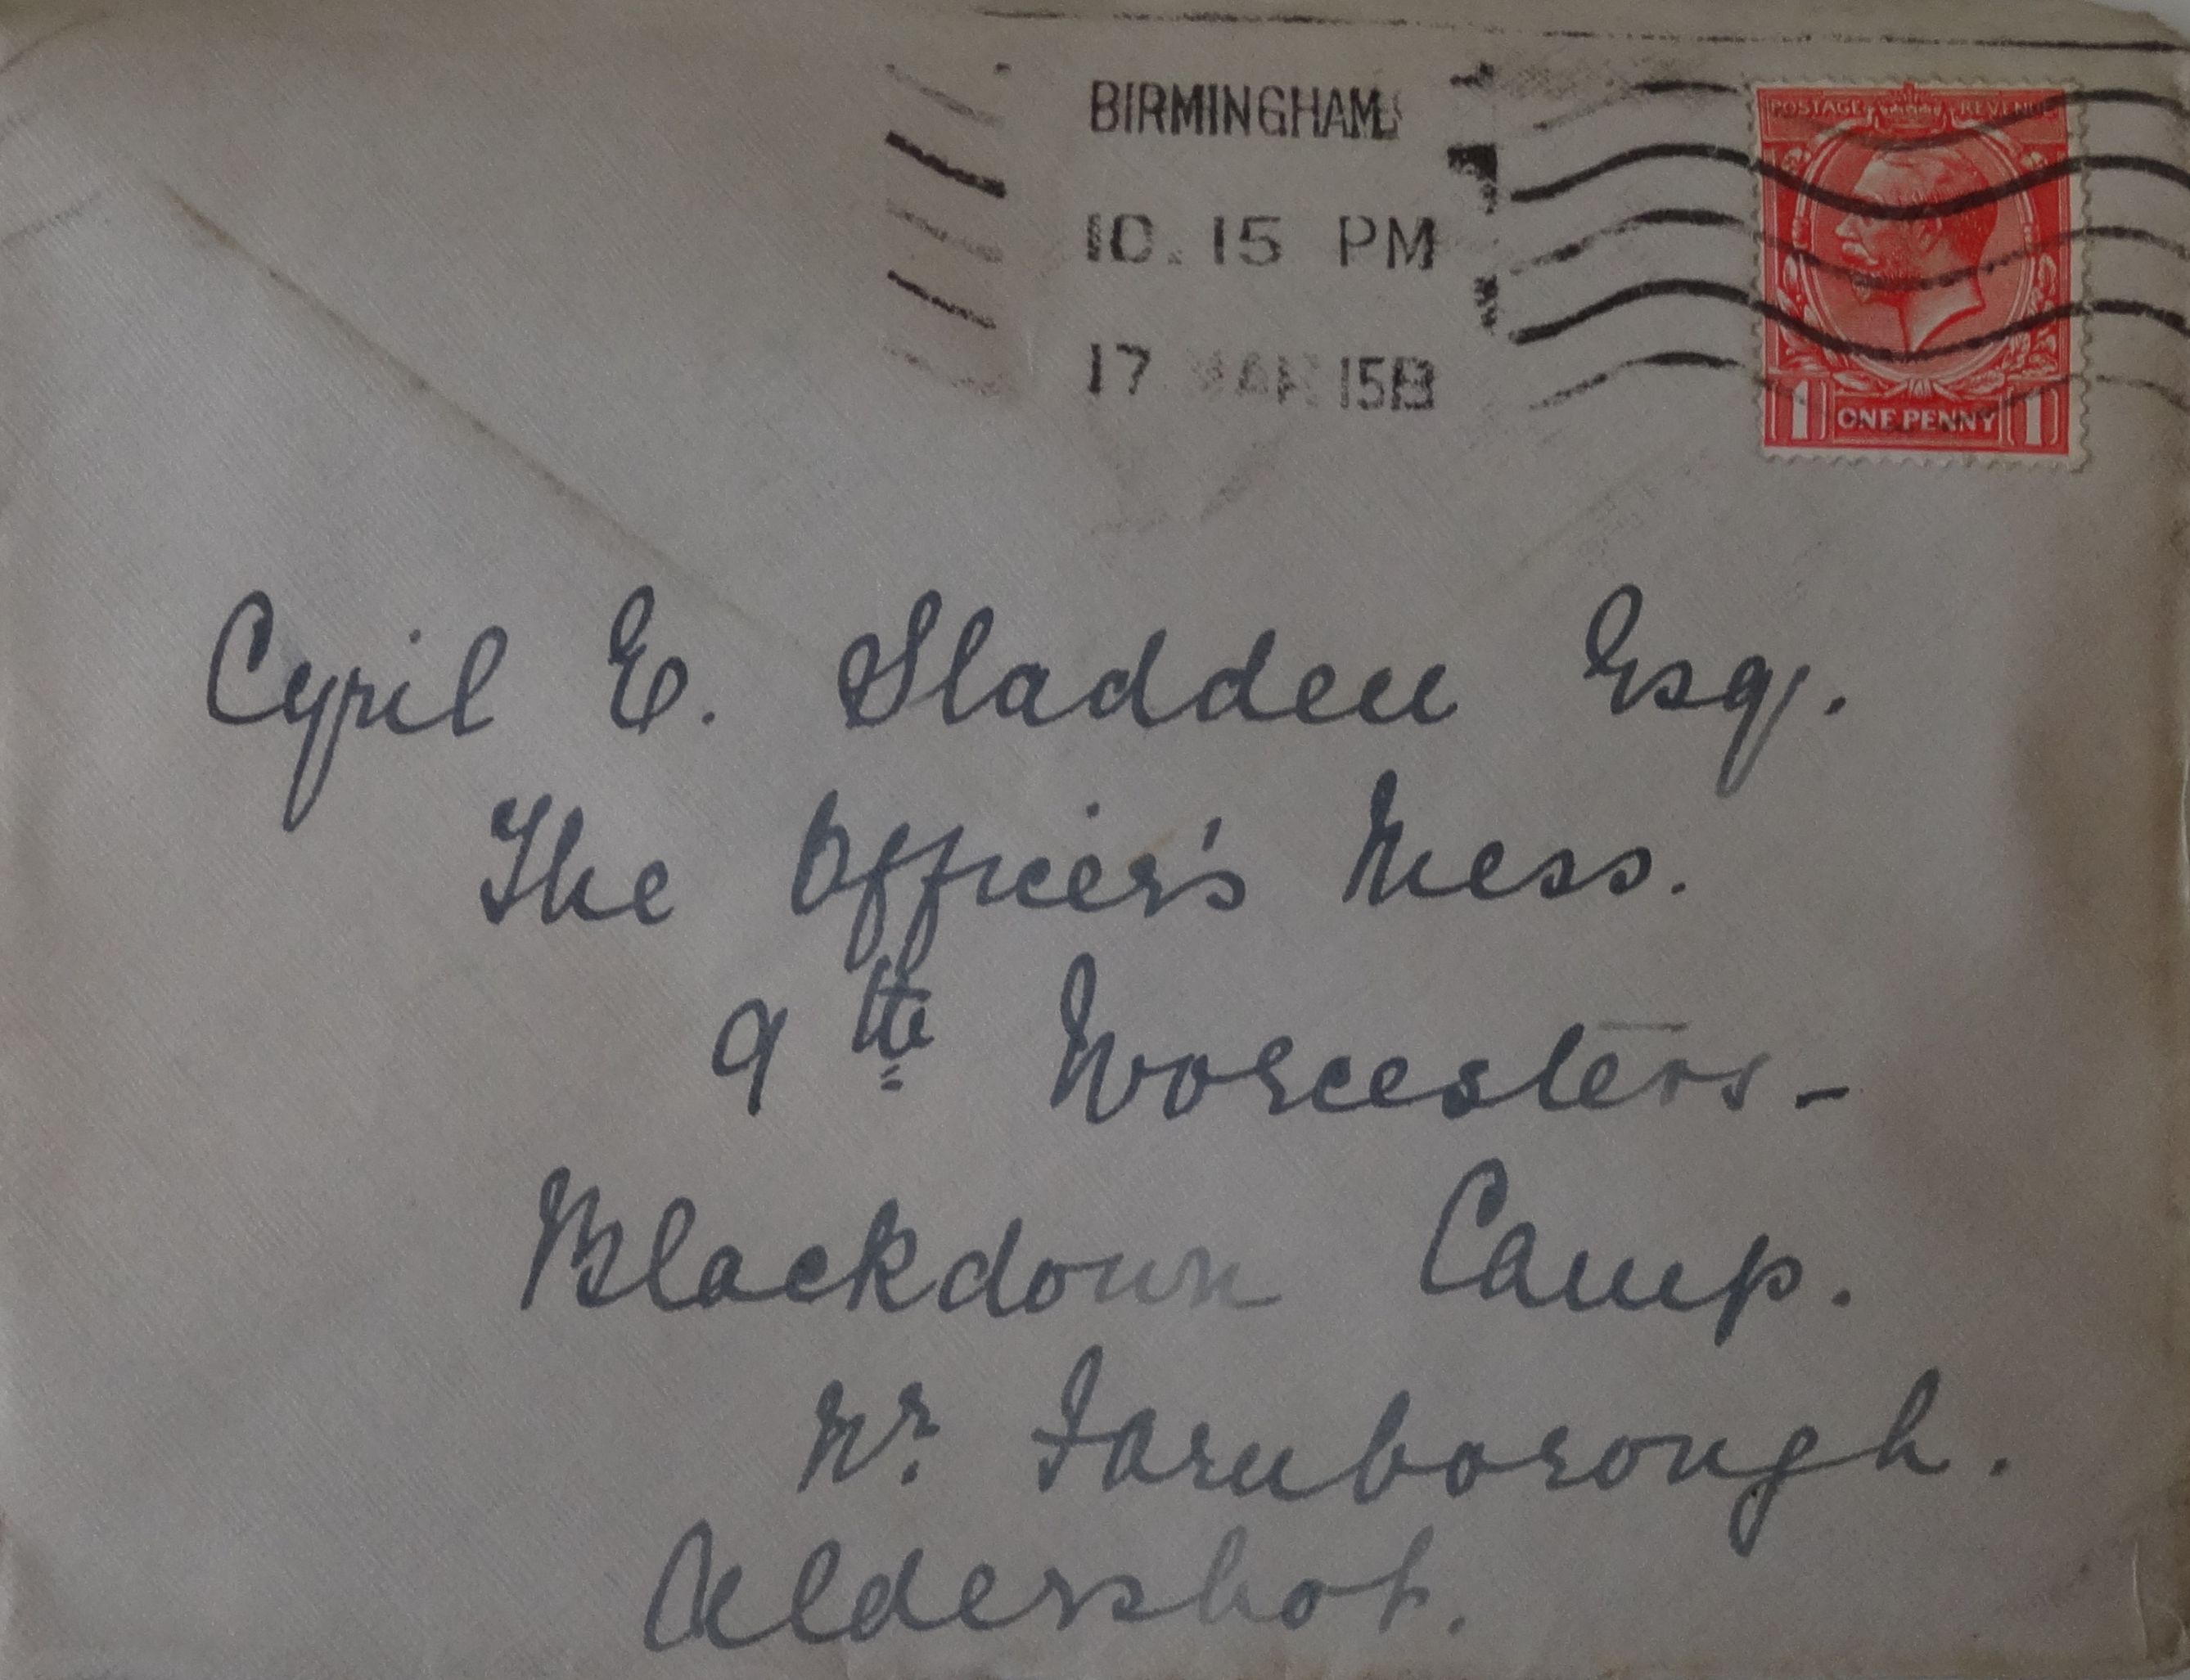 BIRMINGHAM
10.15 PM
17 MAR 15B
POSTAGE REVENUE
1 ONE PENNY 1
Cyril E. Sladden Esq.
The Officer's Mess.
9th Worcesters-
Blackdown Camp.
Nr. Farnborough.
Aldershot.